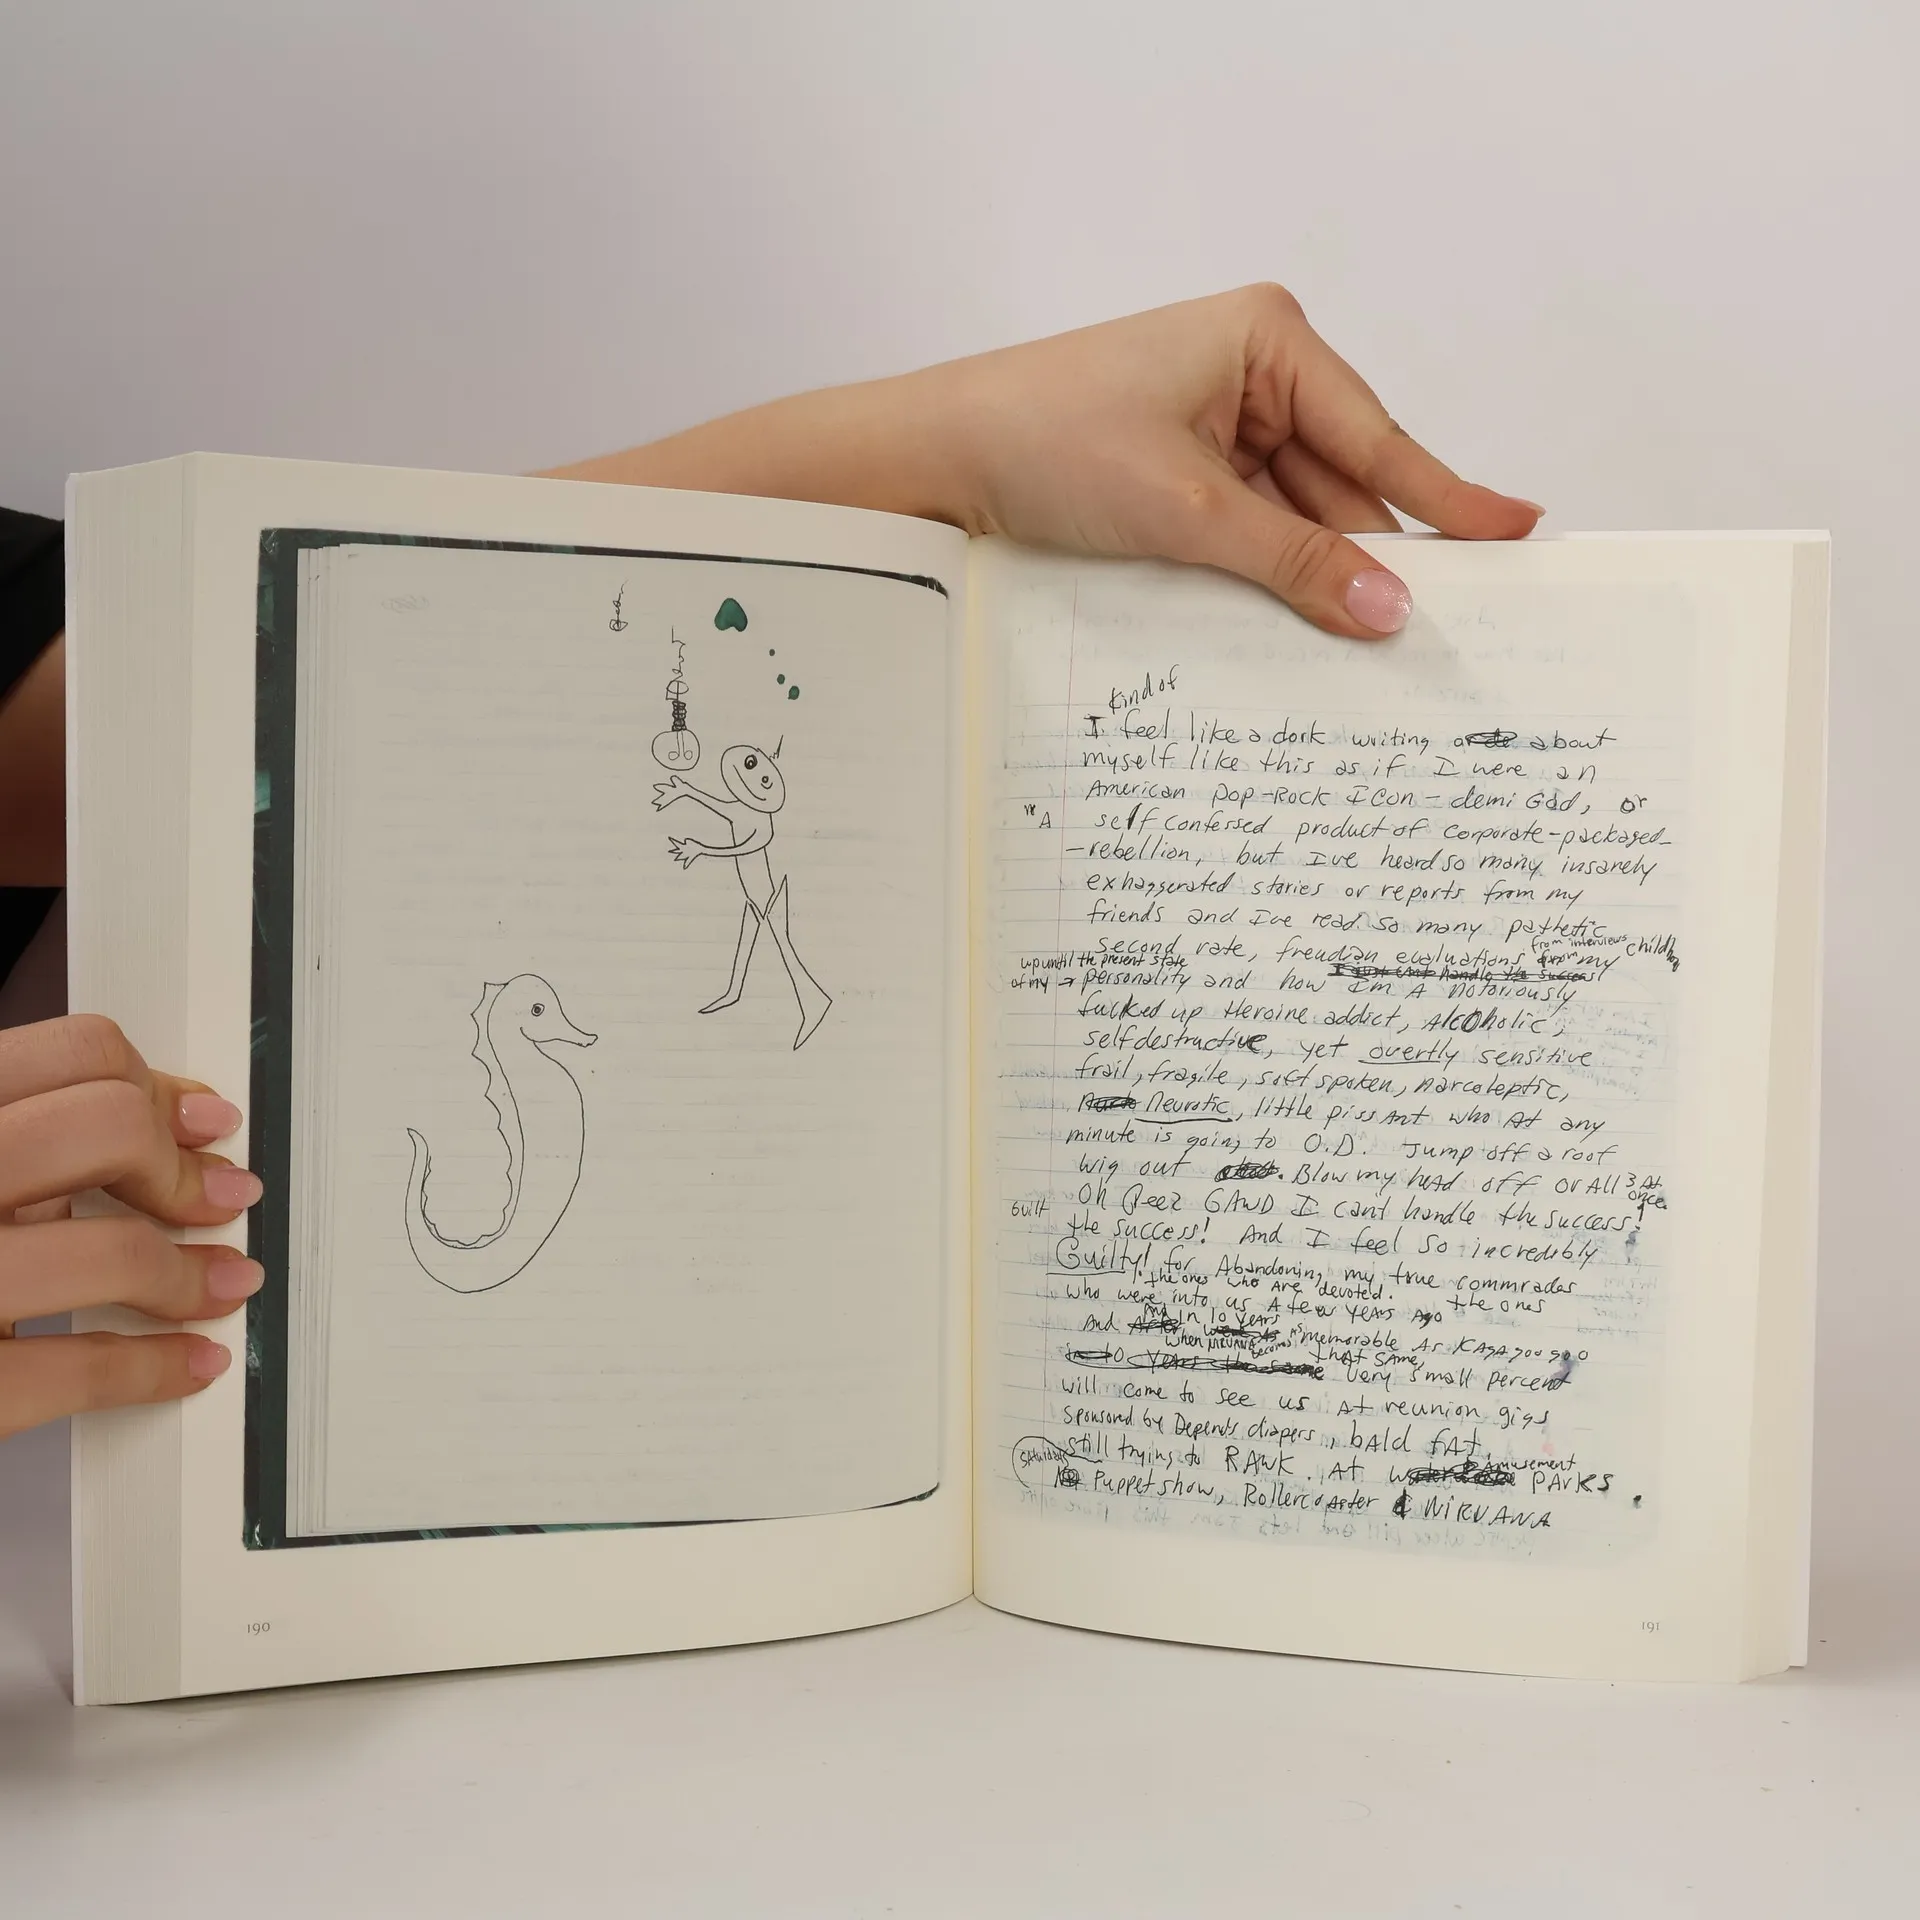 Kind of
I feel like a dork writing about
myself like this as if I were an
American pop-Rock Icon-demi God, or
A self confessed product of corporate-packaged-
-rebellion, but I've heard so many insanely
exhaggerated stories or reports from my
friends and I've read so many pathetic
second rate, freudian evaluations from interviews from my childhood
up until the present state
of my → personality and how I'm A notoriously
I just can't handle the success
fucked up Heroine addict, Alcoholic,
selfdestructive, yet overtly sensitive
frail, fragile, soft spoken, narcoleptic,
Neurotic, little piss Ant who At any
minute is going to O.D. Jump off a roof
wig out. Blow my head off or All 3 At once.
Oh Geez GAWD I cant handle the success!
Guilt
the success! And I feel so incredibly
Guilty! for Abandoning my true commrades
the ones who Are devoted.
who were into us A few years Ago the ones
And in 10 years
when NIRVANA becomes As memorable As KAjA goo goo
that SAme, very small percent
will come to see us At reunion gigs
sponsored by Depends diapers, bAld fAt,
still trying to RAwk. At Amusement PArKs
Saturdays Puppet show, Rollercoaster & NIRVANA
190
191